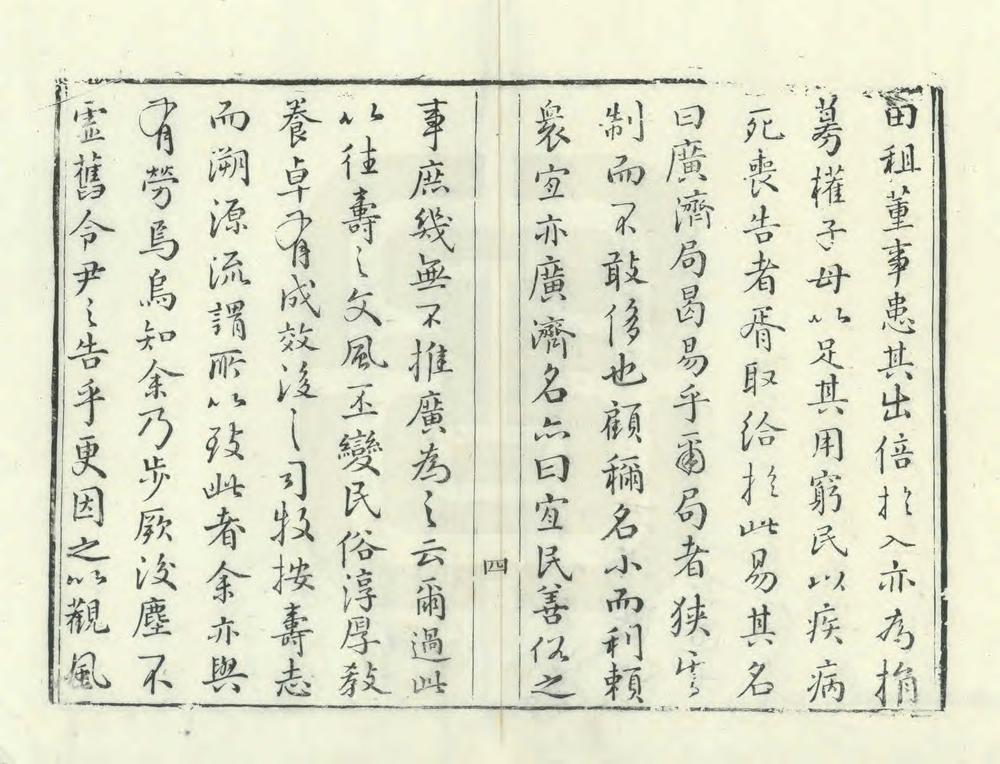 田租董事患其出倍於入亦為捐
募權子母以足其用窮民以疾病
死喪告者胥取給於此易其名
曰廣濟局曷易乎爾局者狹其
制而不敢侈也顧稱名小而利賴
眾宜亦廣濟名亦曰宜民善俗之
四
事庶幾無不推廣為之云爾過此
以往壽之文風丕變民俗淳厚教
養卓有成效後之司牧按壽志
而溯源流謂所以致此者余亦與
有勞焉烏知余乃步厥後塵不
虛舊令尹之告乎更因之以觀風